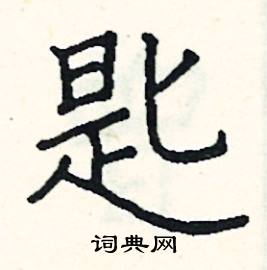 匙
词典网